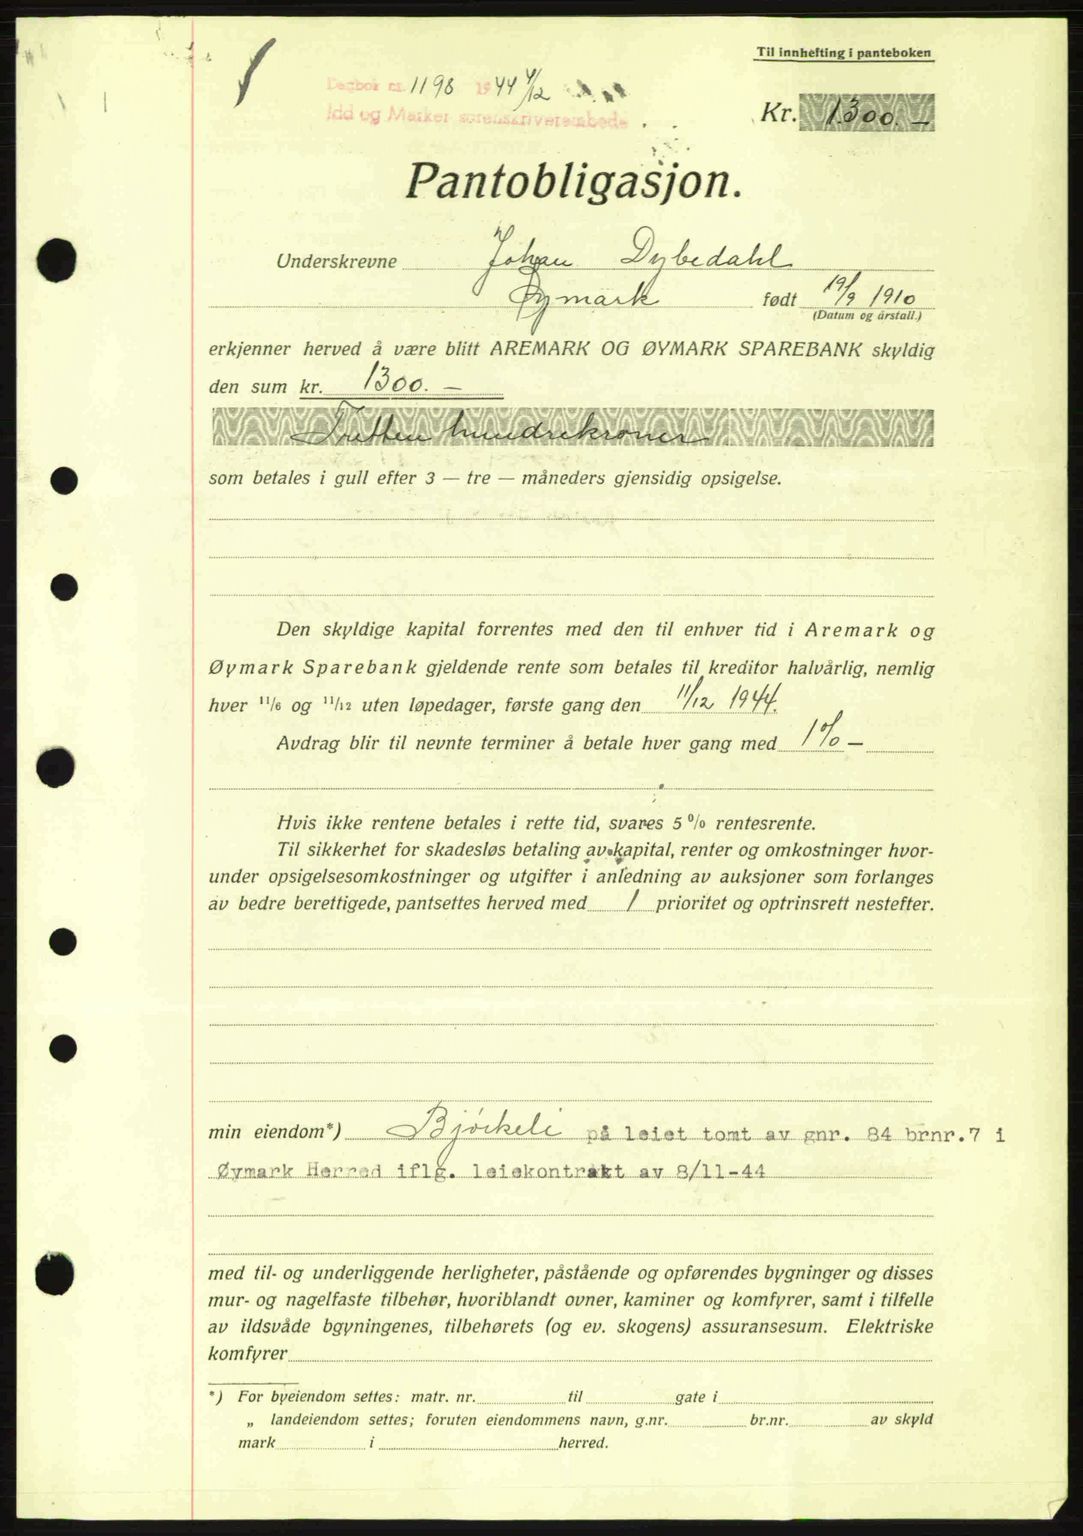 Til innhefting i panteboken
Dagbok nr. 1198 1944 4/12
Idd og Marker sorenskriverembede
Kr. 1300.—
Pantobligasjon.
Underskrevne Johan Dybedahl
Øymark født 19/9 1910
(Datum og årstall.)
erkjenner herved å være blitt AREMARK OG ØYMARK SPAREBANK skyldig
den sum kr. 1300.—
Tretten hundrekroner
som betales i gull efter 3 — tre — måneders gjensidig opsigelse.
Den skyldige kapital forrentes med den til enhver tid i Aremark og
Øymark Sparebank gjeldende rente som betales til kreditor halvårlig, nemlig
hver 11/6 og 11/12 uten løpedager, første gang den 11/12 1944.
Avdrag blir til nevnte terminer å betale hver gang med 1% —
Hvis ikke rentene betales i rette tid, svares 5 % rentesrente.
Til sikkerhet for skadesløs betaling av kapital, renter og omkostninger hvor-
under opsigelsesomkostninger og utgifter i anledning av auksjoner som forlanges
av bedre berettigede, pantsettes herved med 1 prioritet og optrinsrett nestefter.
min eiendom*) Bjørkeli på leiet tomt av gnr. 84 brnr.7 i
Øymark Herred iflg. leiekontrakt av 8/11-44
med til- og underliggende herligheter, påstående og opførendes bygninger og disses
mur- og nagelfaste tilbehør, hvoriblandt ovner, kaminer og komfyrer, samt i tilfelle
av ildsvåde bgyningenes, tilbehørets (og ev. skogens) assuransesum. Elektriske
komfyrer
*) For byeiendom settes: matr. nr. til gate i
„ landeiendom settes; foruten eiendommens navn, g.nr. br.nr. av skyld
mark i herred.